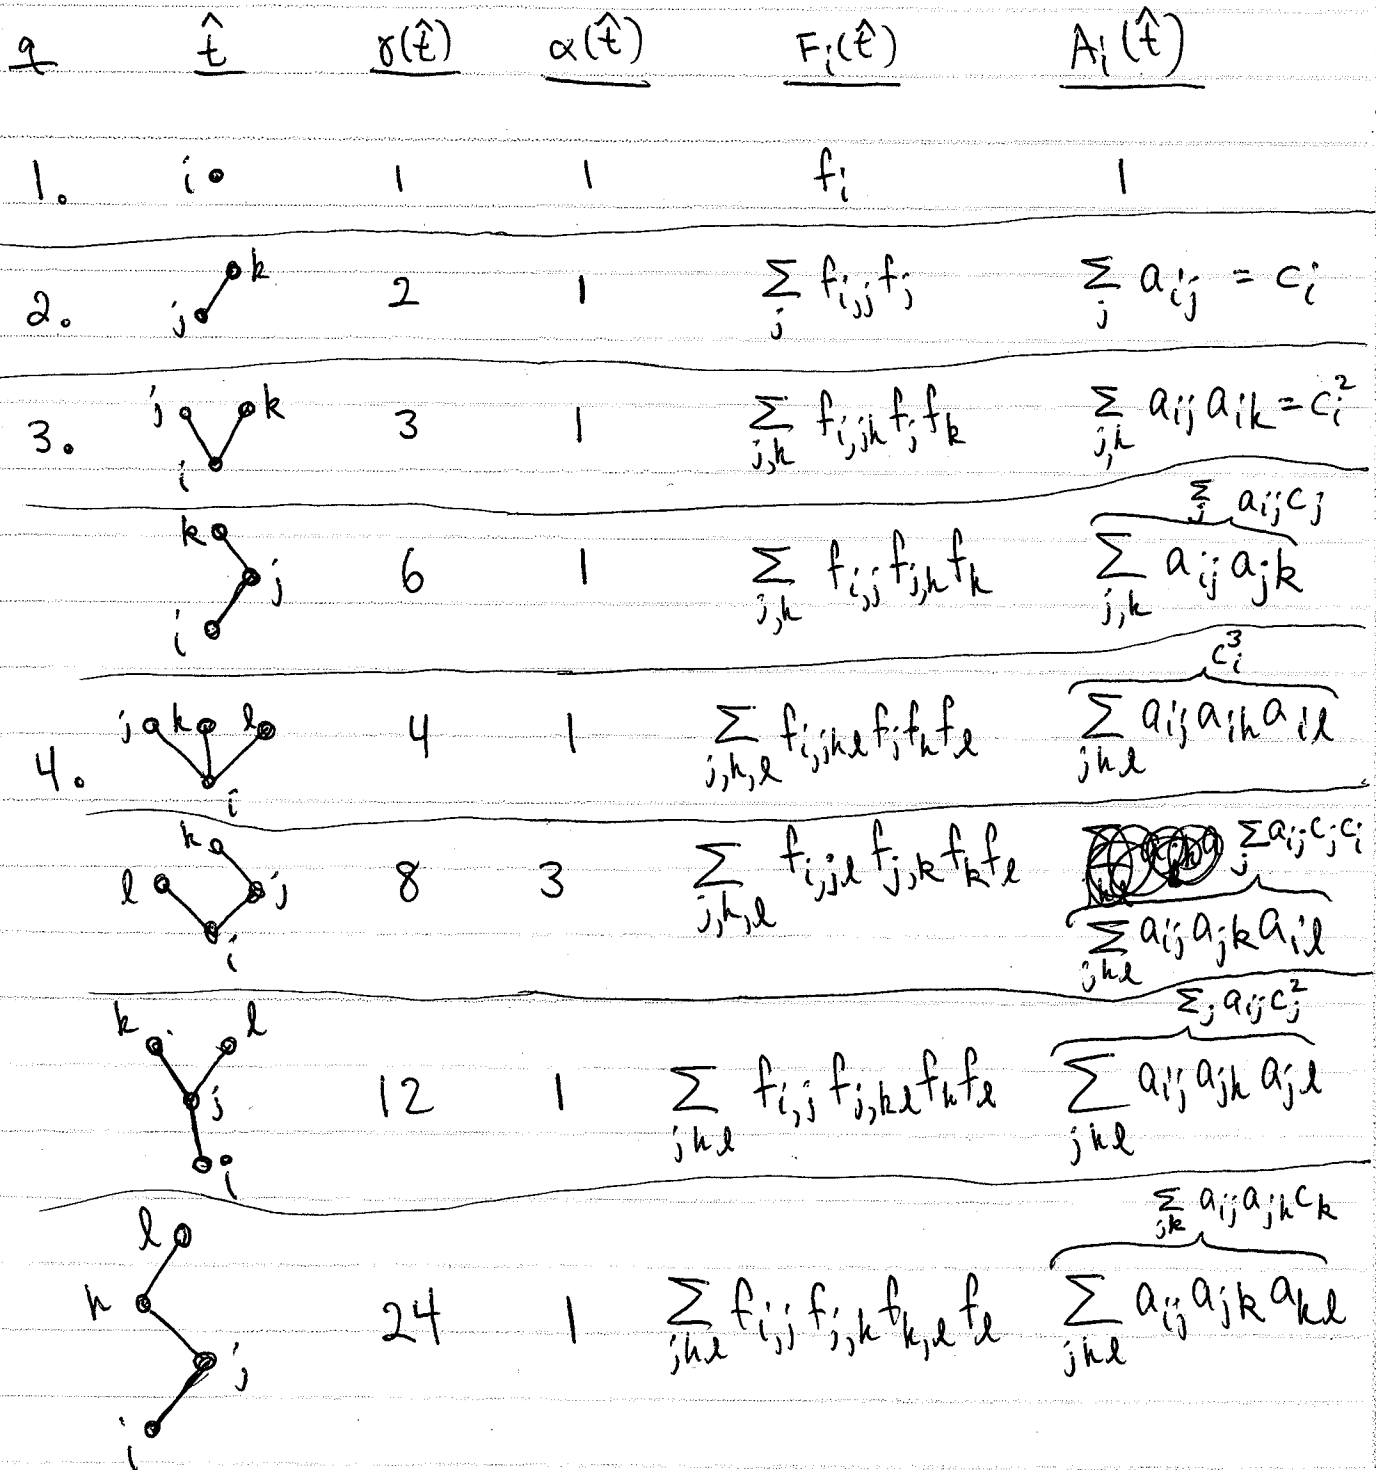 q t̂ γ(t̂) α(t̂) F_i(t̂) A_i(t̂)
1. i 1 1 f_i 1
2. j k 2 1 Σ_j f_{i,j} f_j Σ_j a_{ij} = c_i
3. j k i 3 1 Σ_{j,k} f_{i,jk} f_j f_k Σ_{j,k} a_{ij} a_{ik} = c_i^2
Σ_j a_{ij} c_j
k j i 6 1 Σ_{j,k} f_{i,j} f_{j,k} f_k Σ_{j,k} a_{ij} a_{jk}
c_i^3
4. j k l i 4 1 Σ_{j,k,l} f_{i,jkl} f_j f_k f_l Σ_{jkl} a_{ij} a_{ik} a_{il}
Σ_j a_{ij} c_j c_i
k l j i 8 3 Σ_{j,k,l} f_{i,jl} f_{j,k} f_k f_l Σ_{jkl} a_{ij} a_{jk} a_{il}
Σ_j a_{ij} c_j^2
k l j i 12 1 Σ_{jkl} f_{i,j} f_{j,kl} f_k f_l Σ_{jkl} a_{ij} a_{jk} a_{jl}
Σ_{jk} a_{ij} a_{jk} c_k
l k j i 24 1 Σ_{jkl} f_{i,j} f_{j,k} f_{k,l} f_l Σ_{jkl} a_{ij} a_{jk} a_{kl}